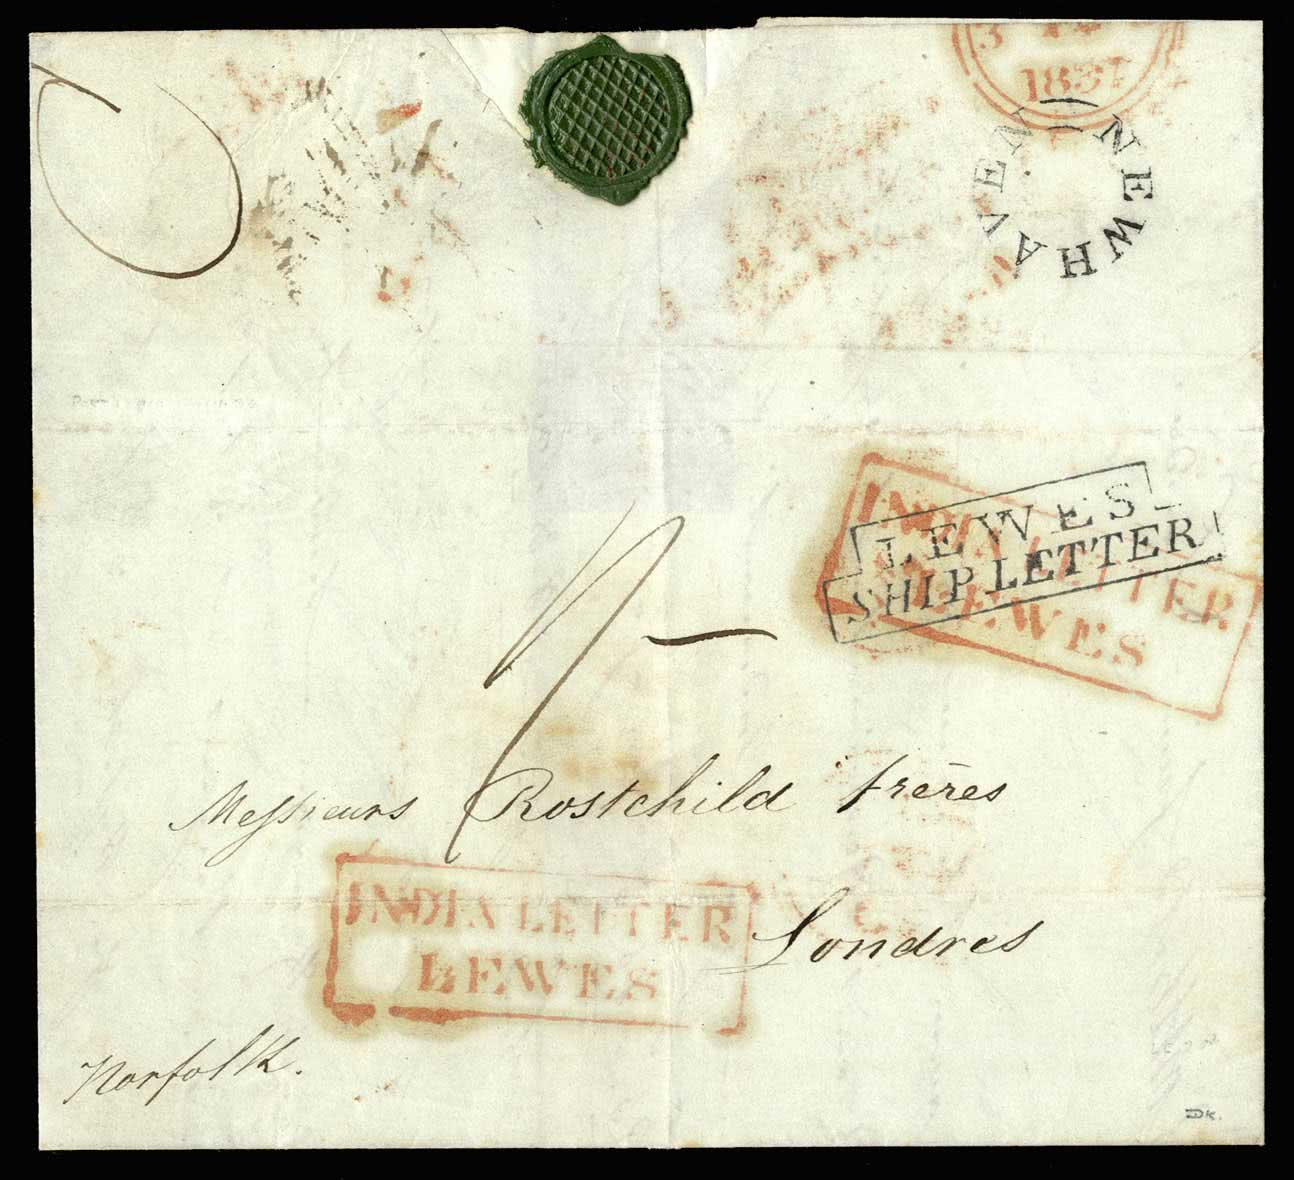 1837
NEWHAVEN
LEWES
SHIP LETTER
INDIA LETTER
LEWES
1/-
Messieurs Rostchild frères
INDIA LETTER
LEWES
Londres
Norfolk.
DK.